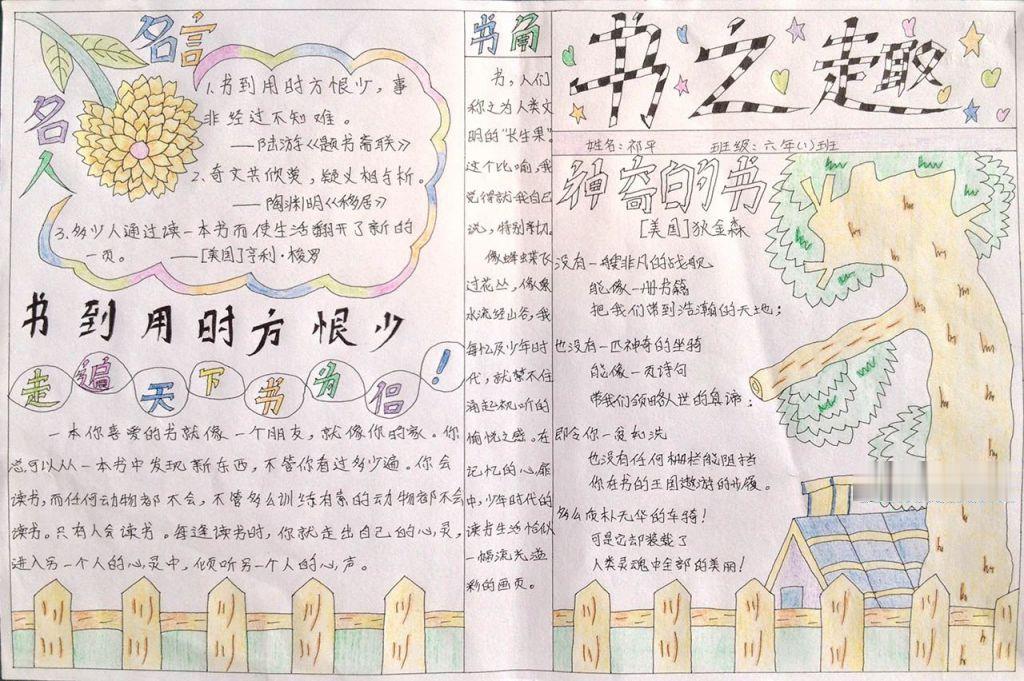 名人
名言
1.书到用时方恨少，事
非经过不知难。
——陆游《题书斋联》
2.奇文共欣赏，疑义相与析。
——陶渊明《移居》
3.多少人通过读一本书而使生活翻开了新的
一页。 ——[美国]亨利·梭罗
书到用时方恨少
走遍天下书为侣！
一本你喜爱的书就像一个朋友，就像你的家。你
总可以从一本书中发现新东西，不管你看过多少遍。你会
读书，而任何动物都不会，不管多么训练有素的动物都不会
读书。只有人会读书。每逢读书时，你就走出自己的心灵，
进入另一个人的心灵中，倾听另一个人的心声。
书角
书，人们
称之为人类文
明的“长生果”。
这个比喻，我
觉得就我自己
说，特别亲切。
像蜂蝶飞
过花丛，像泉
水流经山谷，我
每忆及少年时
代，就禁不住
涌起视听的
愉悦之感。在
记忆的心扉
中，少年时代的
读书生活恰似
一幅流光溢
彩的画页。
书之趣
姓名：祁平 班级：六年(1)班
神奇的书
[美国]狄金森
没有一艘非凡的战舰
能像一册书籍
把我们带到浩瀚的天地；
也没有一匹神奇的坐骑
能像一页诗句
带我们领略人世的真谛；
即令你一贫如洗
也没有任何栅栏能阻挡
你在书的王国遨游的步履。
多么质朴无华的车骑！
可是它却装载了
人类灵魂中全部的美丽！